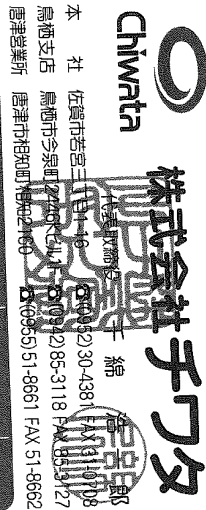 Chiwata
株式会社チワタ
代表取締役 千綿
本社 佐賀市若宮三丁目1-16 ☎(0952)30-4381 FAX 31-0708
鳥栖支店 鳥栖市今泉町 ☎(0942)85-3118 FAX 85-3127
唐津営業所 唐津市相知町相知2160 ☎(0955)51-8661 FAX 51-8662